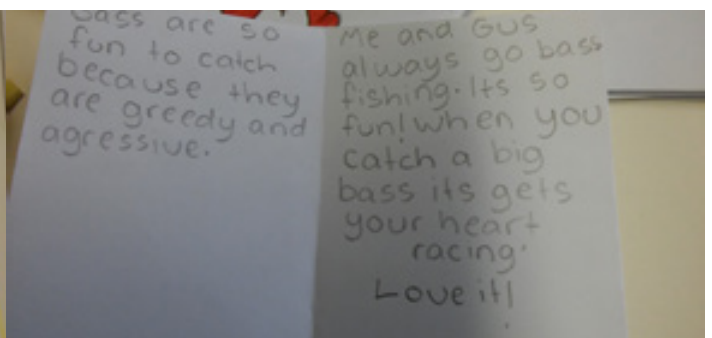 bass are so
fun to catch
because they
are greedy and
agressive.
Me and Gus
always go bass
fishing. Its so
fun! when you
catch a big
bass its gets
your heart
racing.
Love it!